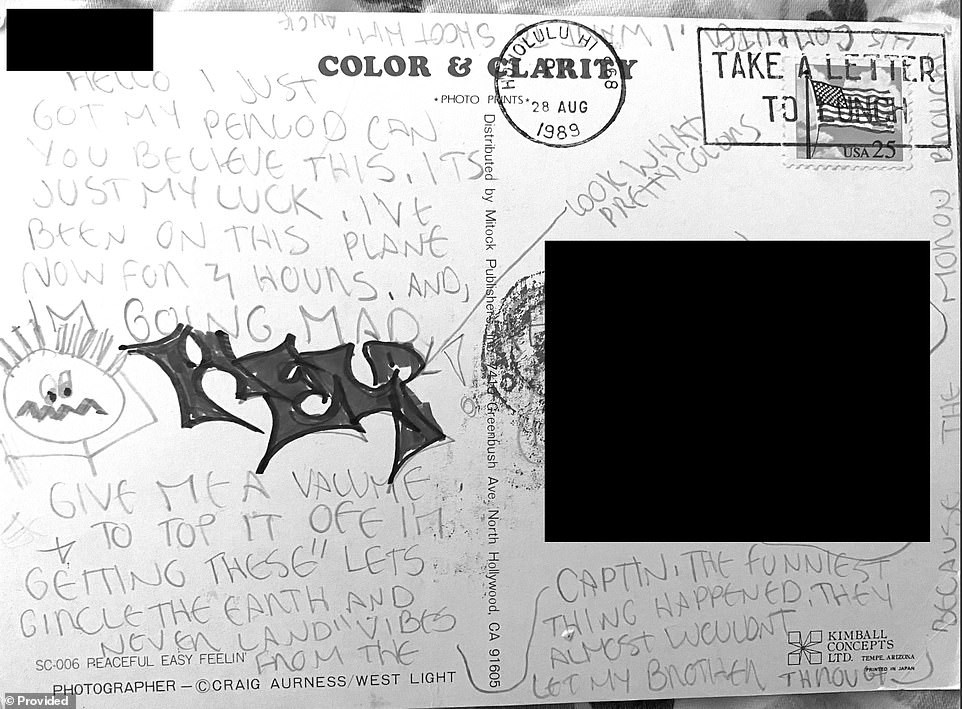 HELLO I JUST
GOT MY PERIOD CAN
YOU BELIEVE THIS, ITS
JUST MY LUCK, I'VE
BEEN ON THIS PLANE
NOW FOR 3 HOURS, AND,
IM GOING MAD
GIVE ME A VALUME
+ TO TOP IT OFF I'M
GETTING THESE" LETS
CIRCLE THE EARTH AND
NEVER LAND" VIBES
FROM THE
SC-006 PEACEFUL EASY FEELIN'
PHOTOGRAPHER – © CRAIG AURNESS/WEST LIGHT
COLOR & CLARITY
• PHOTO PRINTS •
Distributed by Mitock Publishers, Greenbush Ave, North Hollywood, CA 91605
HONOLULU HI 968
28 AUG
1989
TAKE A LETTER
TO LUNCH
USA 25
LOOK WHAT
PRETTY COLORS
CAPTIN, THE FUNNIEST
THING HAPPENED, THEY
ALMOST WOULDN'T
LET MY BROTHER THROUGH
BECAUSE THE MORON BROUGHT
HIS COMPUTER, I WANT TO SHOOT HIM.
KIMBALL
CONCEPTS
LTD. TEMPE, ARIZONA
PRINTED IN JAPAN
© Provided